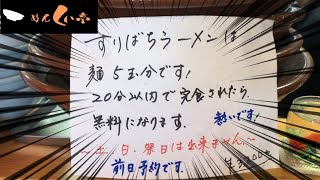 めんくい亭
すりばちラーメンは
麺5玉分です!
20分以内で完食されたら
無料になります。
熱いです!
〜土、日、祭日は出来ません〜
前日予約です。